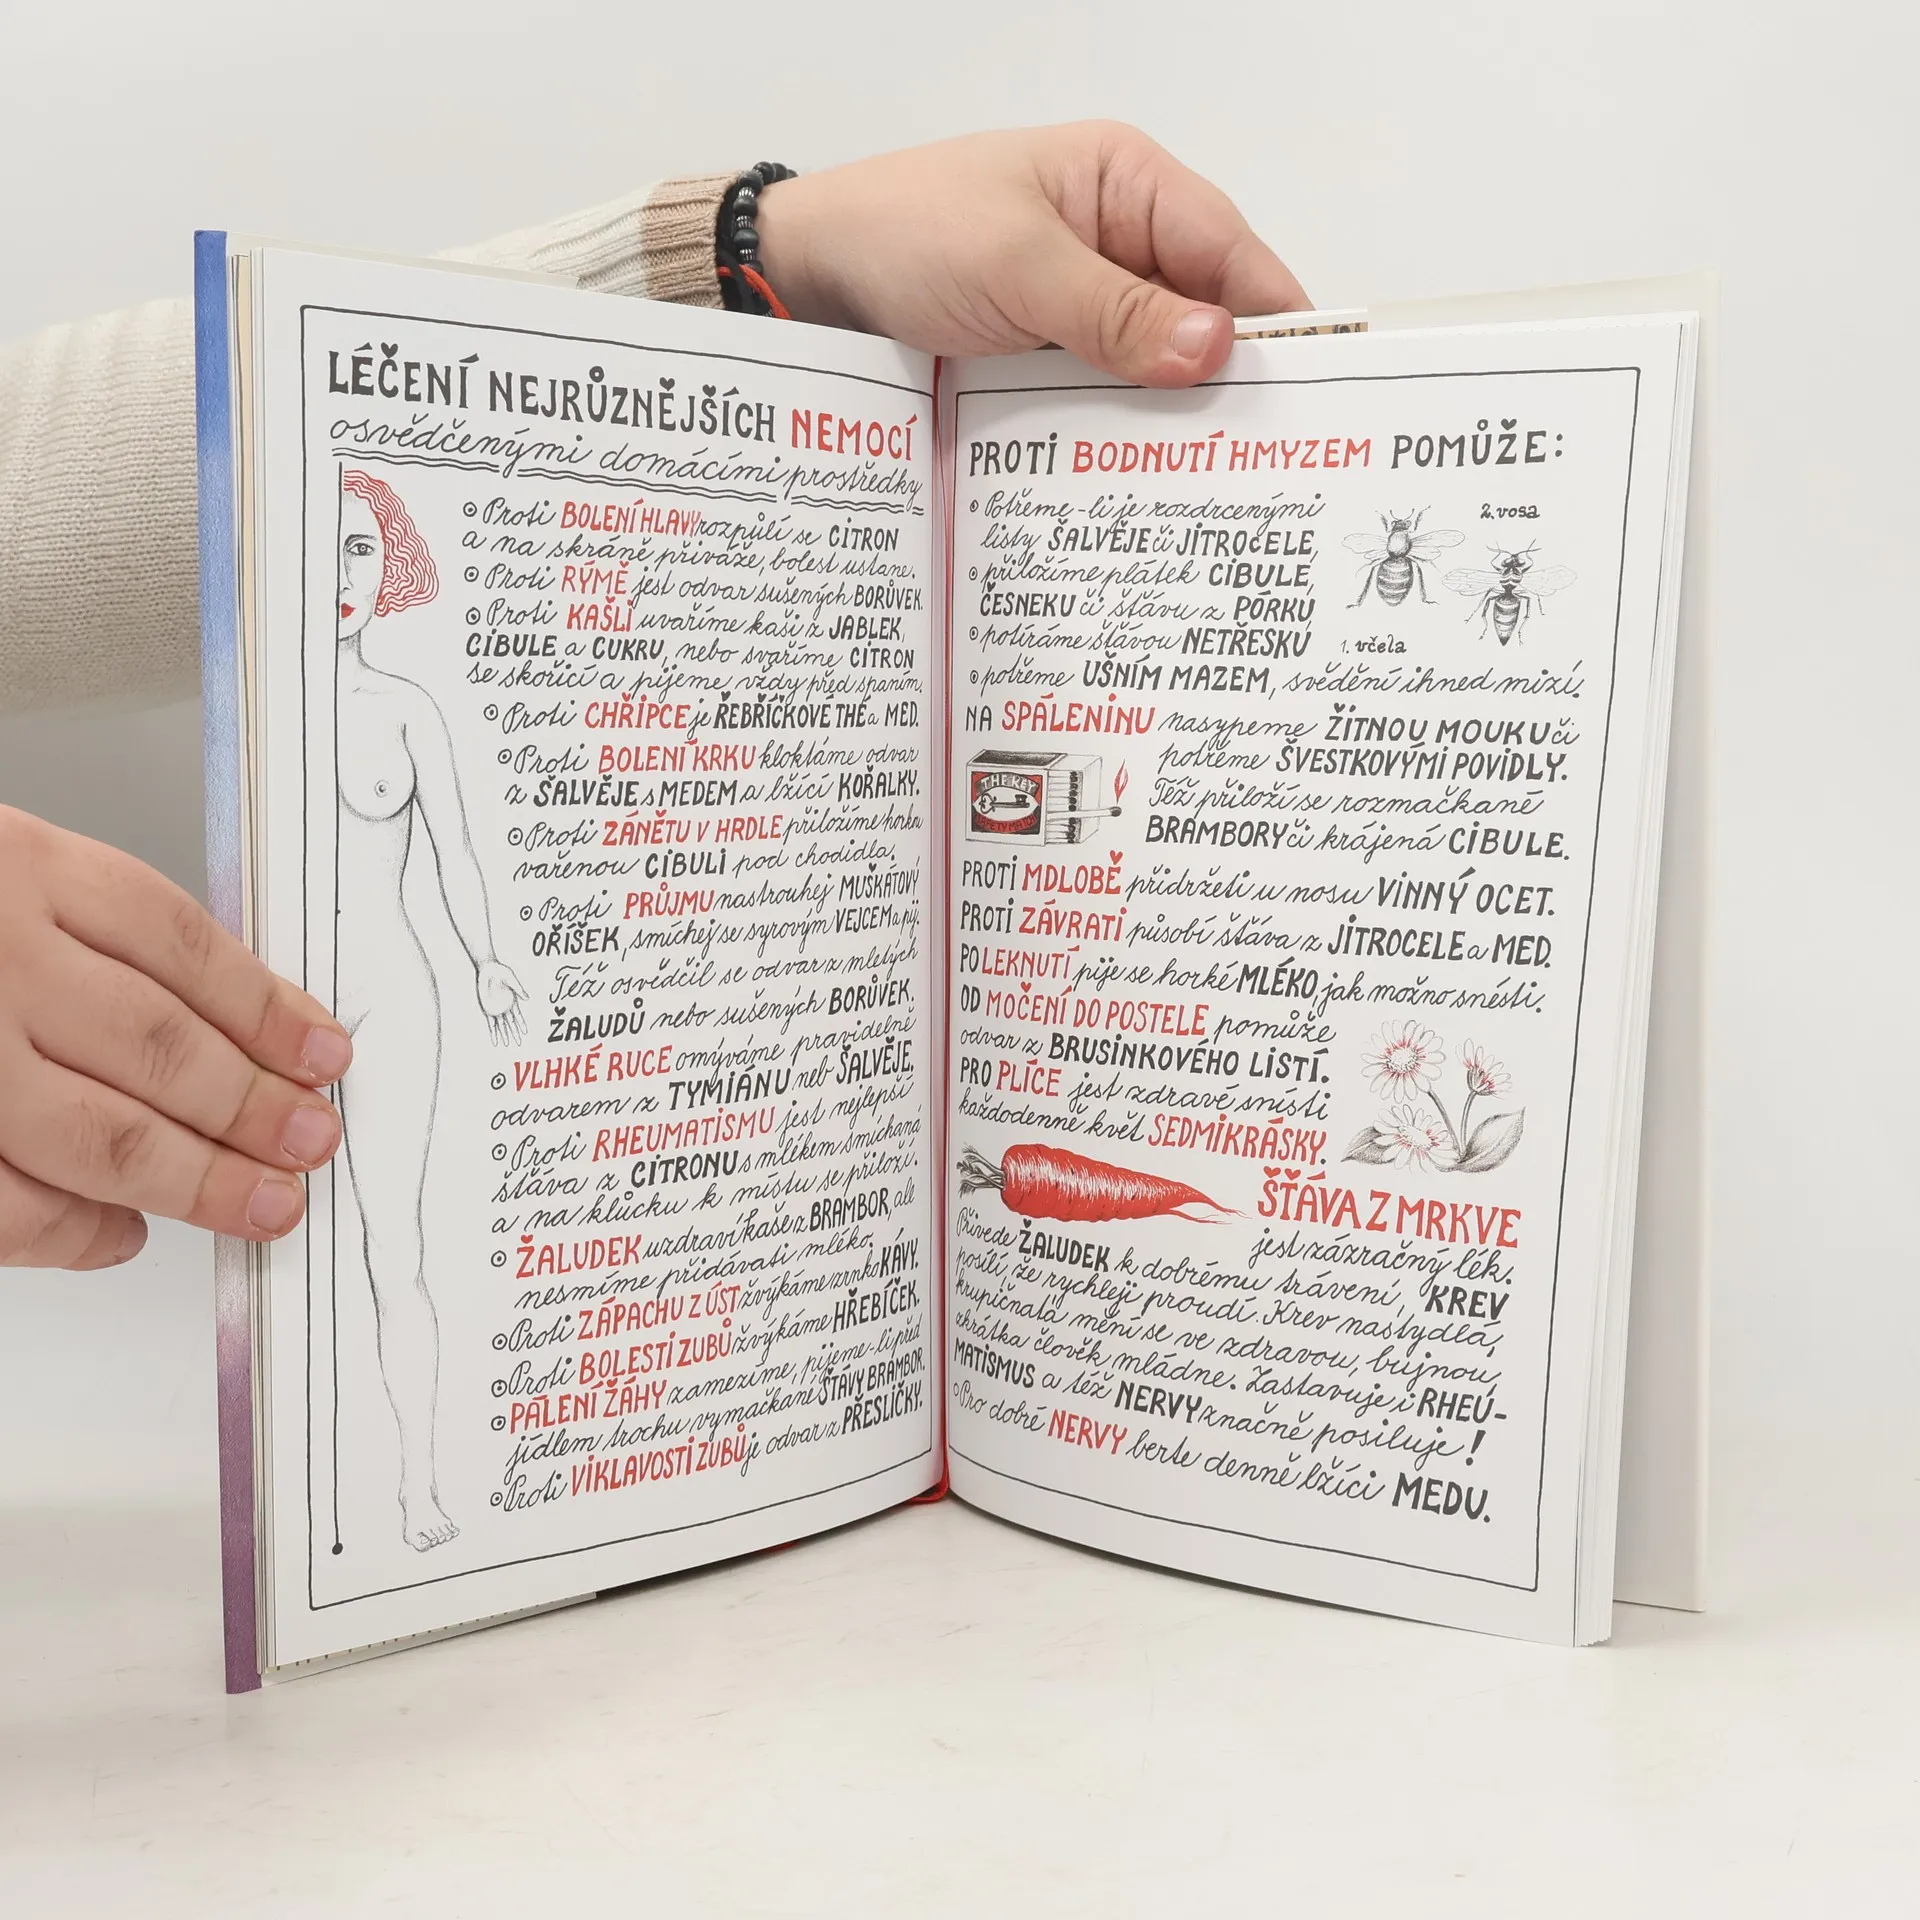 LÉČENÍ NEJRŮZNĚJŠÍCH NEMOCÍ
osvědčenými domácími prostředky
Proti BOLENÍ HLAVY rozpůlí se CITRON
a na skráně přiváže, bolest ustane.
Proti RÝMĚ jest odvar sušených BORŮVEK.
Proti KAŠLI uvaříme kaši z JABLEK,
CIBULE a CUKRU, nebo svaříme CITRON
se skořicí a pijeme vždy před spaním.
Proti CHŘIPCE je ŘEBŘÍČKOVÉ THÉ a MED.
Proti BOLENÍ KRKU kloktáme odvar
z ŠALVĚJE s MEDEM a lžící KOŘALKY.
Proti ZÁNĚTU V HRDLE přiložíme horkou
vařenou CIBULI pod chodidla.
Proti PRŮJMU nastrouhej MUŠKÁTOVÝ
OŘÍŠEK, smíchej se syrovým VEJCEM a pij.
Též osvědčil se odvar z mletých
ŽALUDŮ nebo sušených BORŮVEK.
VLHKÉ RUCE omýváme pravidelně
odvarem z TYMIÁNU neb ŠALVĚJE.
Proti RHEUMATISMU jest nejlepší
šťáva z CITRONU s mlékem smíchaná
a na klůcku k místu se přiloží.
ŽALUDEK uzdraví kaše z BRAMBOR, ale
nesmíme přidávati mléko.
Proti ZÁPACHU Z ÚST žvýkáme zrnko KÁVY.
Proti BOLESTI ZUBŮ žvýkáme HŘEBÍČEK.
PÁLENÍ ŽÁHY zamezíme, pijeme-li před
jídlem trochu vymačkané ŠŤÁVY BRAMBOR.
Proti VIKLAVOSTI ZUBŮ je odvar z PŘESLIČKY.
PROTI BODNUTÍ HMYZEM POMŮŽE:
Potřeme-li je rozdrcenými
listy ŠALVĚJE či JITROCELE,
přiložíme plátek CIBULE,
ČESNEKU či šťávu z PÓRKU,
potíráme šťávou NETŘESKU
potřeme UŠNÍM MAZEM, svědění ihned mizí.
2. vosa
1. včela
NA SPÁLENINU nasypeme ŽITNOU MOUKU či
potřeme ŠVESTKOVÝMI POVIDLY.
Též přiloží se rozmačkané
BRAMBORY či krájená CIBULE.
THE KEY
SAFETY MATCH
PROTI MDLOBĚ přidržeti u nosu VINNÝ OCET.
PROTI ZÁVRATI působí šťáva z JITROCELE a MED.
PO LEKNUTÍ pije se horké MLÉKO, jak možno snésti.
OD MOČENÍ DO POSTELE pomůže
odvar z BRUSINKOVÉHO LISTÍ.
PRO PLÍCE jest zdravé snísti
každodenně květ SEDMIKRÁSKY.
ŠŤÁVA Z MRKVE
jest zázračný lék.
Přivede ŽALUDEK k dobrému trávení, KREV
posílí, že rychleji proudí. Krev nastydlá,
krupičnatá mění se ve zdravou, bujnou,
zkrátka člověk mládne. Zastavuje i RHEU-
MATISMUS a též NERVY značně posiluje!
Pro dobré NERVY berte denně lžíci MEDU.